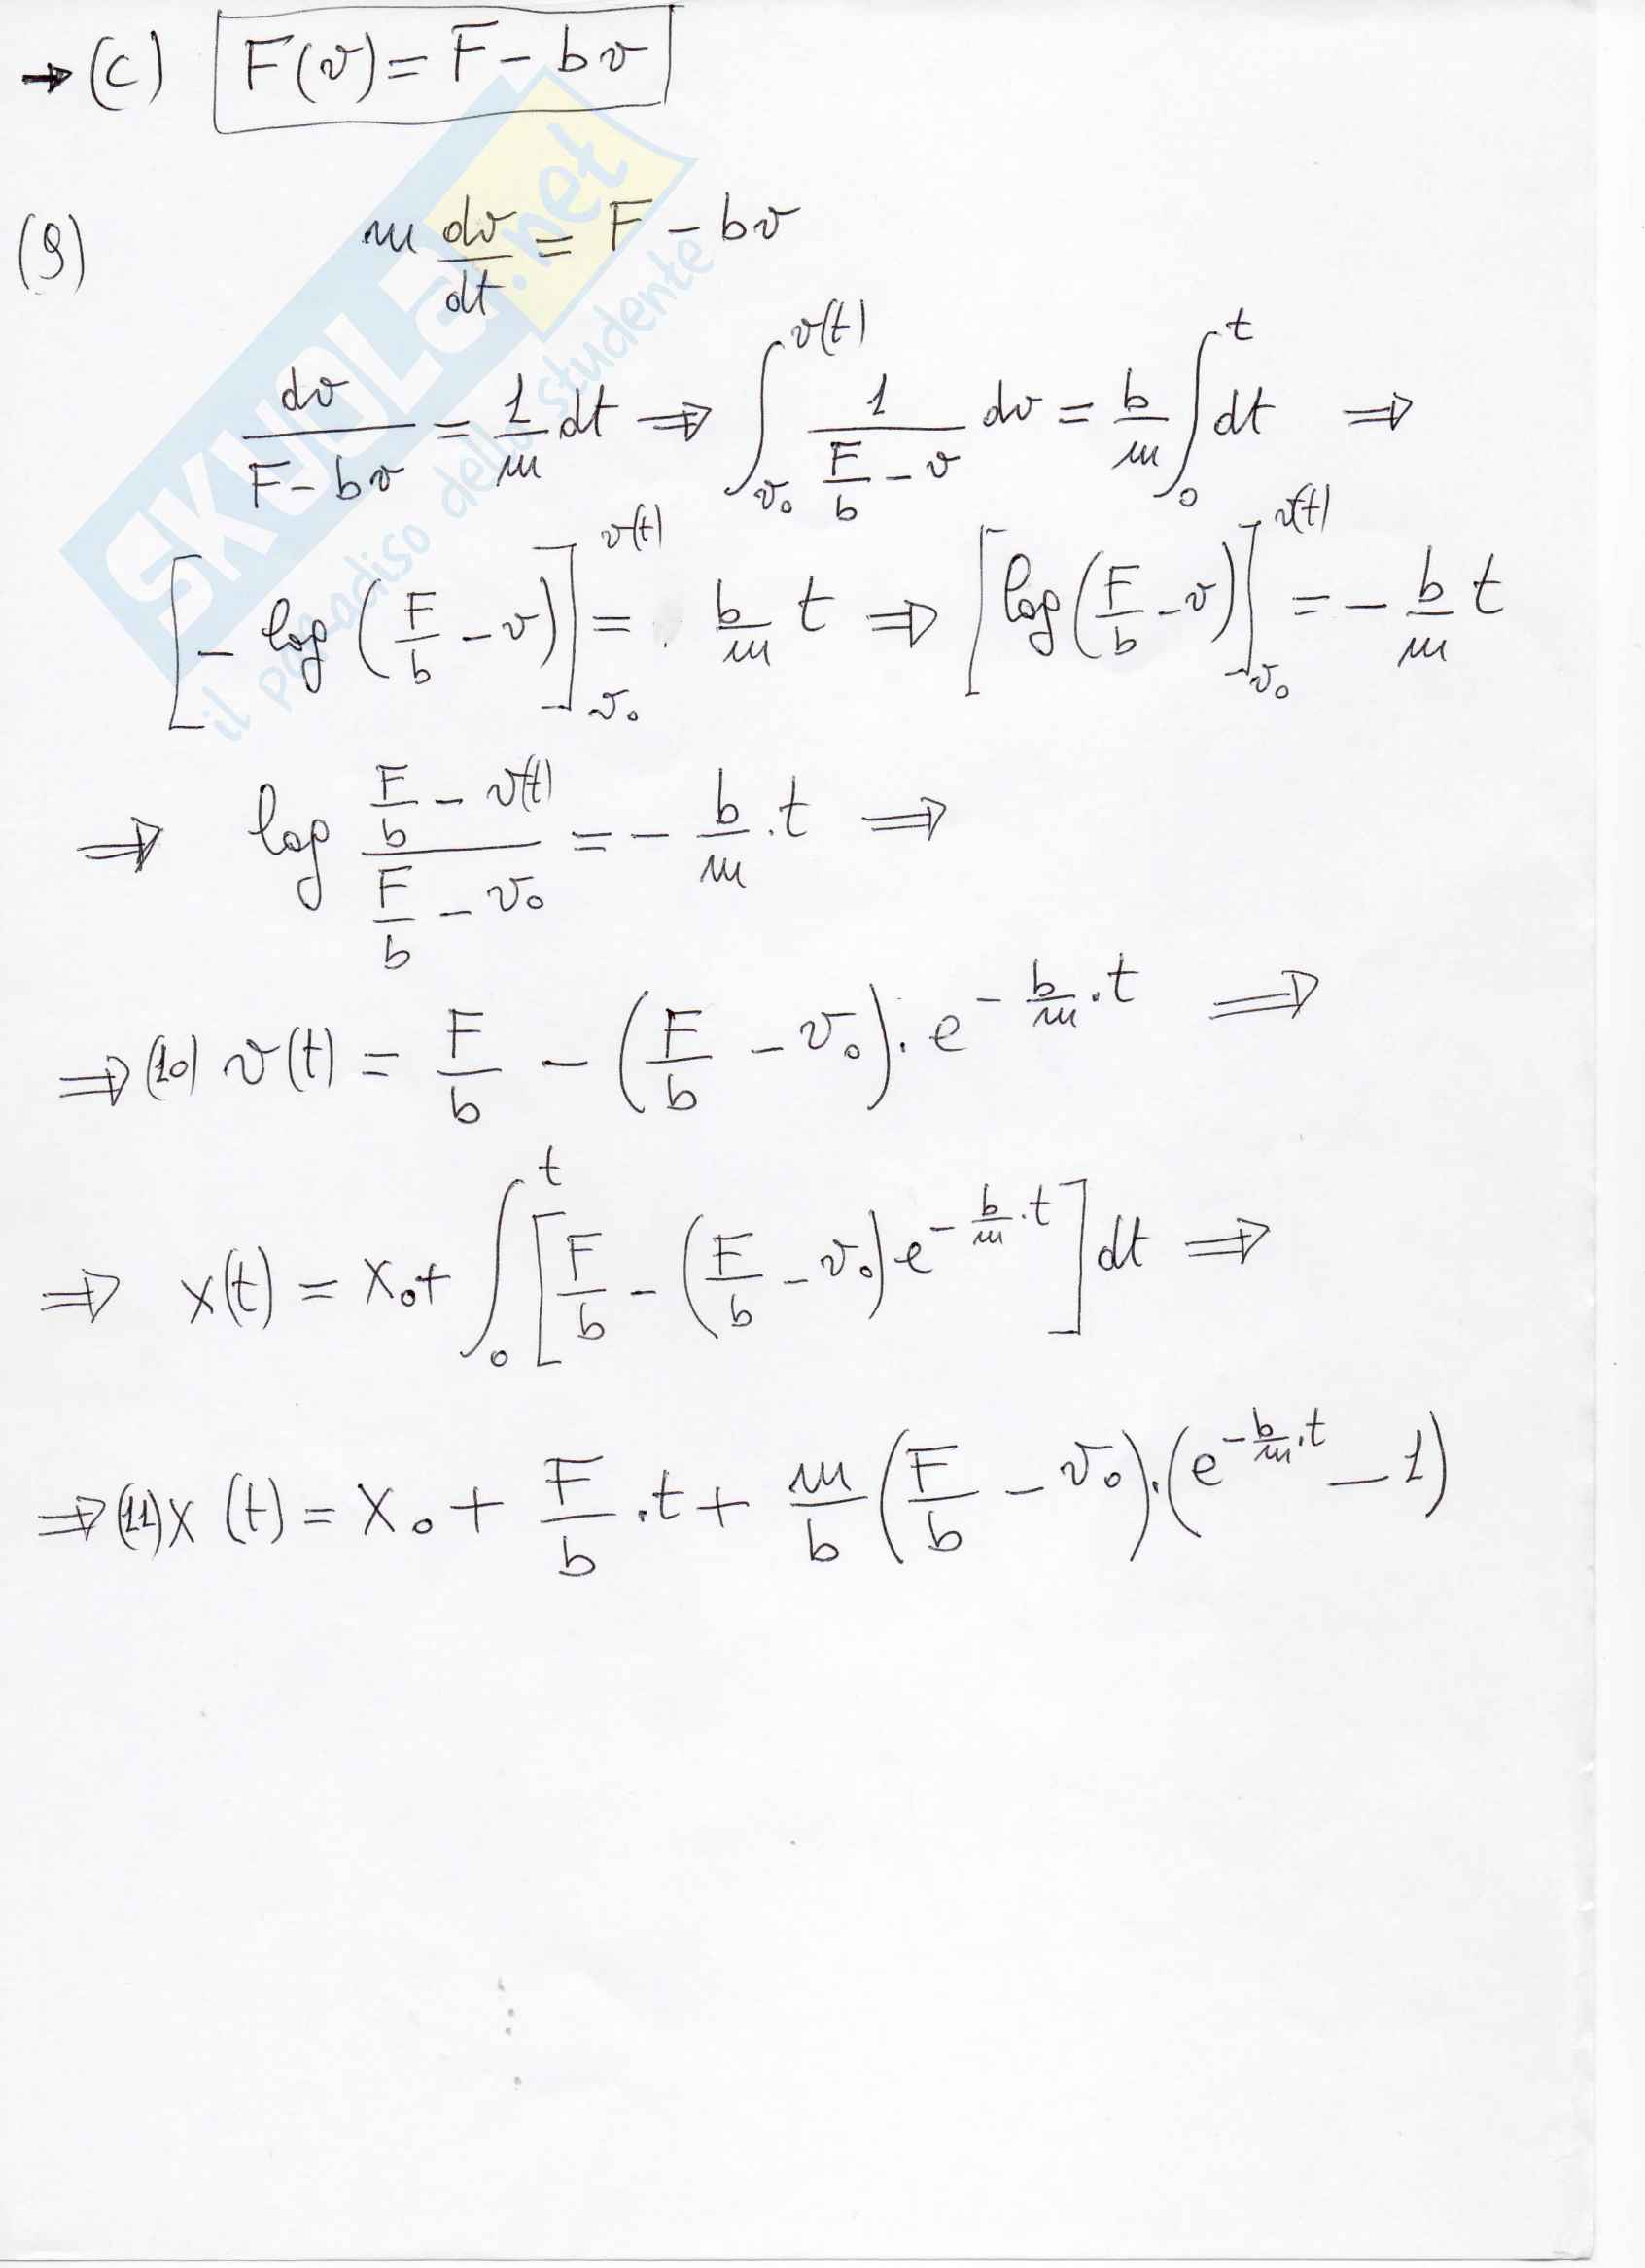 → (c) F(v) = F - bv
(9) m dv/dt = F - bv
dv/(F - bv) = 1/m dt ⇒ ∫_{v₀}^{v(t)} 1/(F/b - v) dv = b/m ∫_0^t dt ⇒
[- log (F/b - v)]_{v₀}^{v(t)} = b/m t ⇒ [log (F/b - v)]_{v₀}^{v(t)} = - b/m t
⇒ log (F/b - v(t))/(F/b - v₀) = - b/m · t ⇒
⇒ (10) v(t) = F/b - (F/b - v₀) · e^{- b/m · t} ⇒
⇒ x(t) = x₀ + ∫_0^t [F/b - (F/b - v₀) e^{- b/m · t}] dt ⇒
⇒ (11) x(t) = x₀ + F/b · t + m/b (F/b - v₀) · (e^{- b/m · t} - 1)
SKUOLA.net
il paradiso dello studente